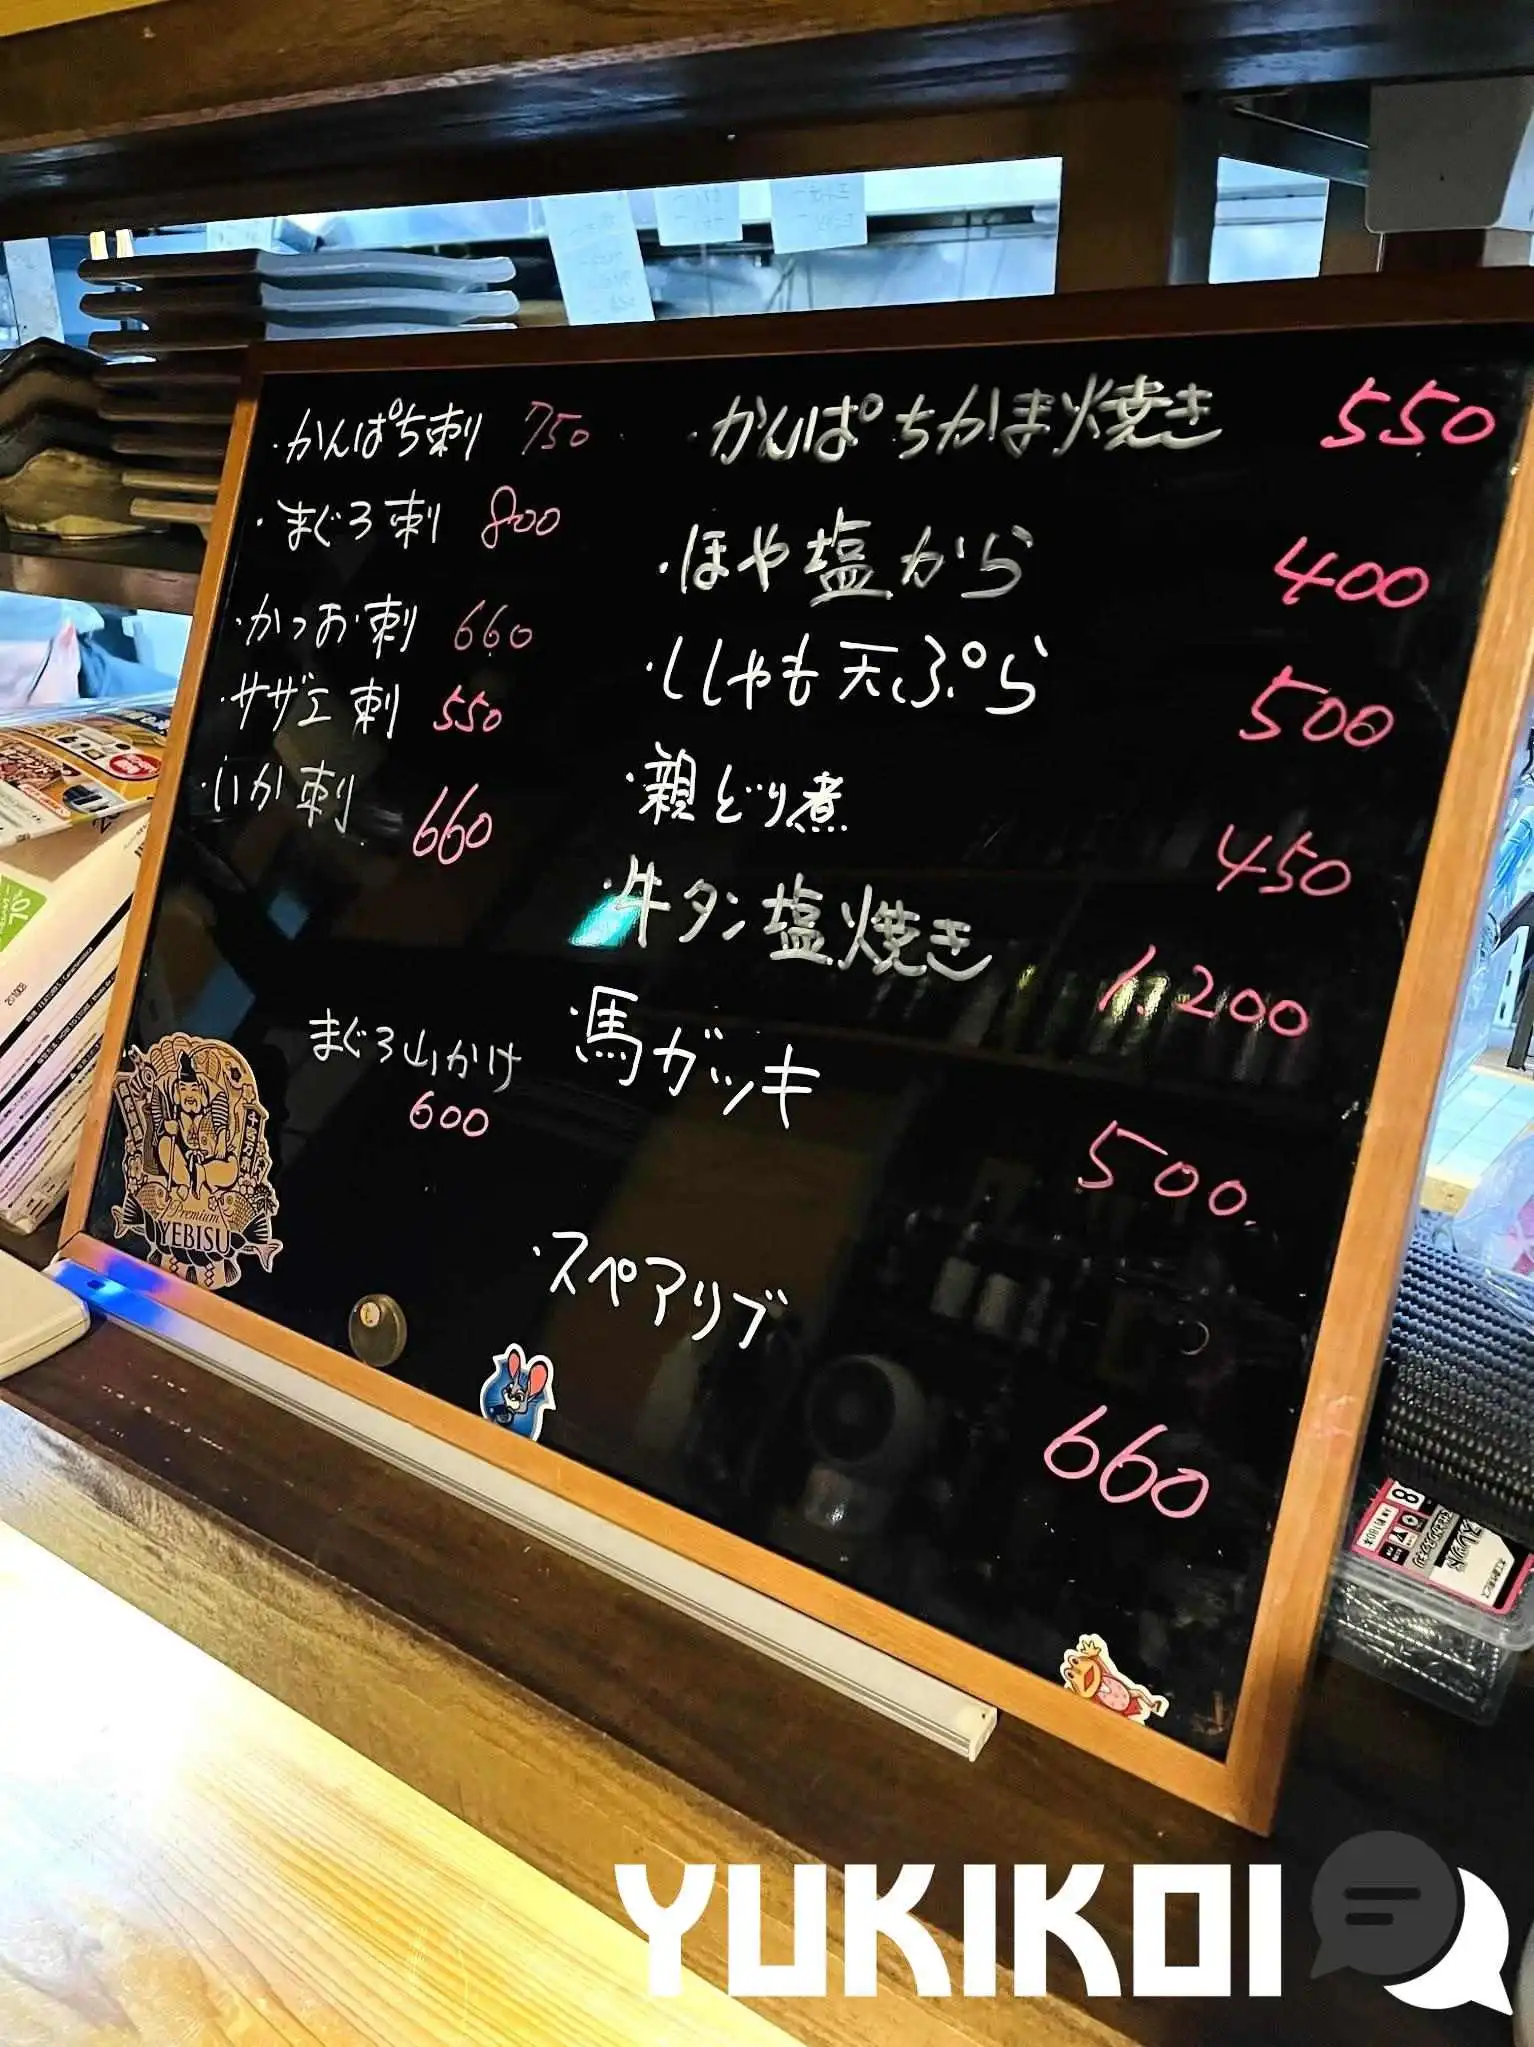 ・かんぱち刺 750
・まぐろ刺 800
・かつお刺 660
・サザエ刺 550
・いか刺 660
まぐろ山かけ
600
・かんぱちかま焼き 550
・ほや塩から 400
・ししゃも天ぷら 500
・親どり煮 450
・牛タン塩焼き 1.200
・馬ガツキ 500.
・スペアリブ 660
Premium
YEBISU
YUKIKOI